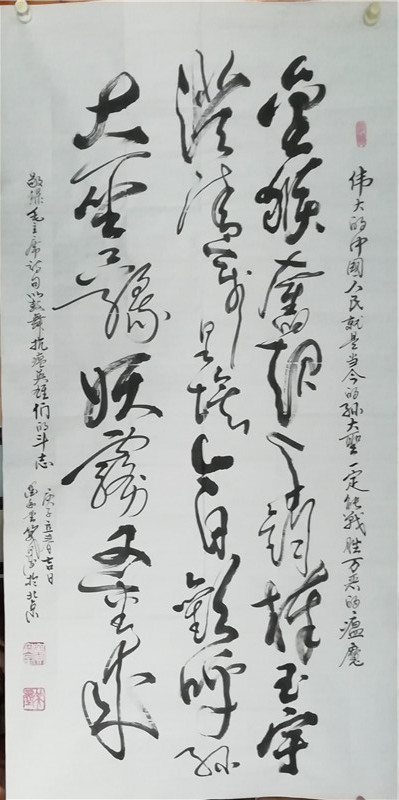 伟大的中國人民就是当今的孙大聖一定能戰胜万恶的瘟魔
金猴奮起千鈞棒玉宇
澄清萬里埃今日歡呼孫
大聖只緣妖霧又重來
敬錄毛主席诗句以鼓舞抗疫英雄们的斗志
庚子吉日
於北京